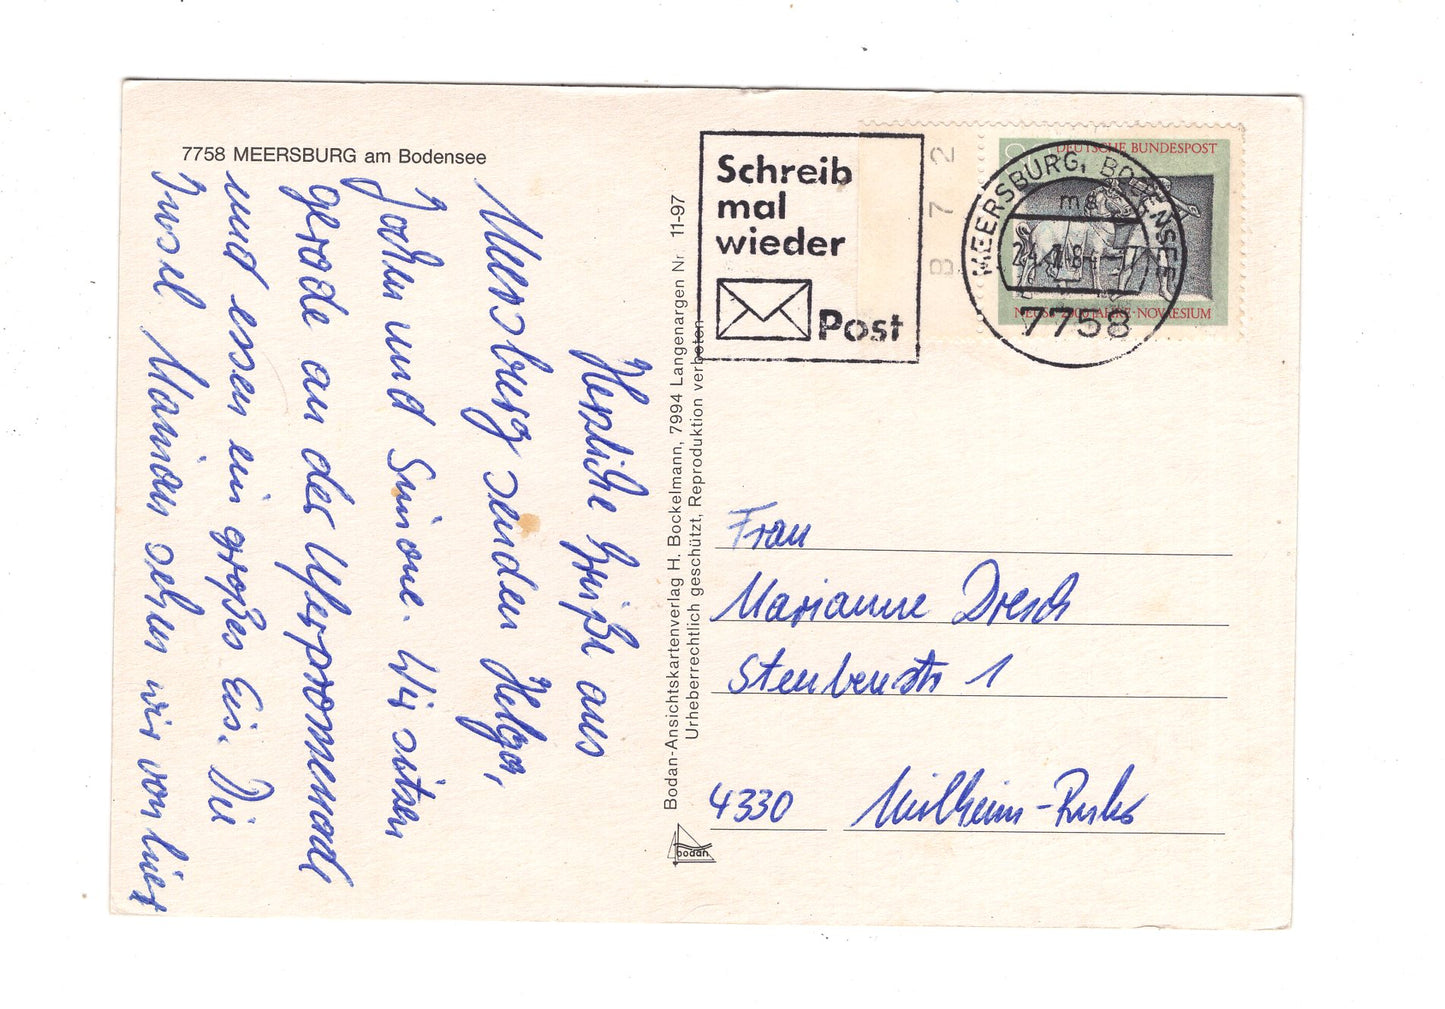 7758 MEERSBURG am Bodensee
Herzliche Grüße aus
Meersburg senden Helga,
John und Simone. Wir sitzen
gerade an der Uferpromenade
und essen ein großes Eis. Die
Insel Mainau sehn wir von hier
Bodan-Ansichtskartenverlag H. Bockelmann, 7994 Langenargen Nr 11-97
Urheberrechtlich geschützt, Reproduktion verboten
bodan
Schreib
mal
wieder
Post
8 7 2
DEUTSCHE BUNDESPOST
NEUSS 2000 JAHRE · NOVAESIUM
MEERSBURG, BODENSEE
me
7758
Frau
Marianne Dresch
Steubenstr 1
4330 Mülheim-Ruhr